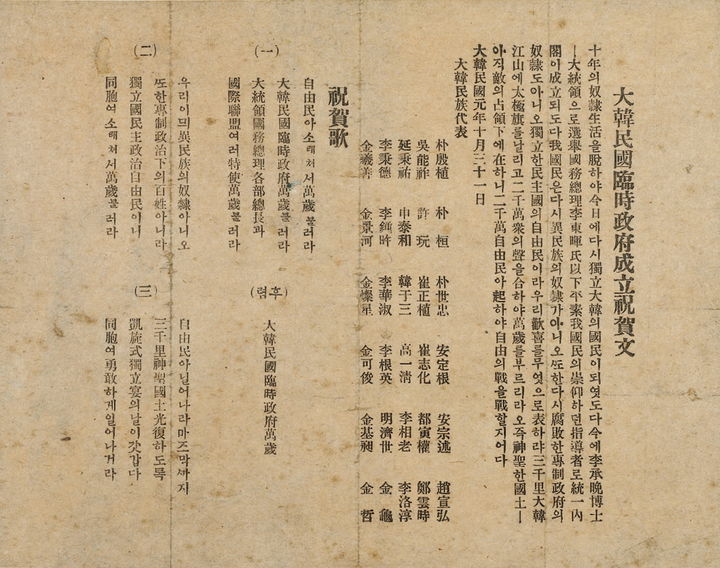 大韓民國臨時政府成立祝賀文
十年의奴隷生活을脫하야今日에다시獨立大韓의國民이되엿도다今에李承晩博士
ㅣ大統領으로選擧國務總理李東暉氏以下平素我國民의崇仰하던指導者로統一內
閣이成立되도다我國民은다시異民族의奴隷가아니오또한다시腐敗한專制政府의
奴隷도아니오獨立한民主國의自由民이라우리歡喜를무엇으로表하랴三千里大韓
江山에太極旗를날리고二千萬衆의聲을合하야萬歲를부르리라오즉神聖한國土ㅣ
아직敵의占領下에在하니二千萬自由民아起하야自由의戰을戰할지어다
大韓民國元年十月三十一日
大韓民族代表
朴殷植 朴桓 朴世忠 安定根 安宗述 趙宣弘
吳能祚 許玩 崔正植 崔志化 都寅權 鄭雲時
延秉祐 申泰和 韓于三 高一淸 李相老 李洛淳
李秉德 李鍾旿 李華淑 李根英 明濟世 金龜
金羲善 金景河 金燦星 金可俊 金基昶 金哲
祝賀歌
(一)
自由民아소래쳐서萬歲불러라
大韓民國臨時政府萬歲불러라
大統領國務總理各部總長과
國際聯盟여러特使萬歲불러라
(후렴)
大韓民國臨時政府萬歲
(二)
우리이믜異民族의奴隷아니오
또한專制政治下의百姓아니라
獨立國民主政治自由民이니
同胞여소래쳐서萬歲불러라
(三)
自由民아닐어나라마즈막까지
三千里神聖國土光復하도록
凱旋式獨立宴의날이갓갑다
同胞여勇敢하게일어나거라